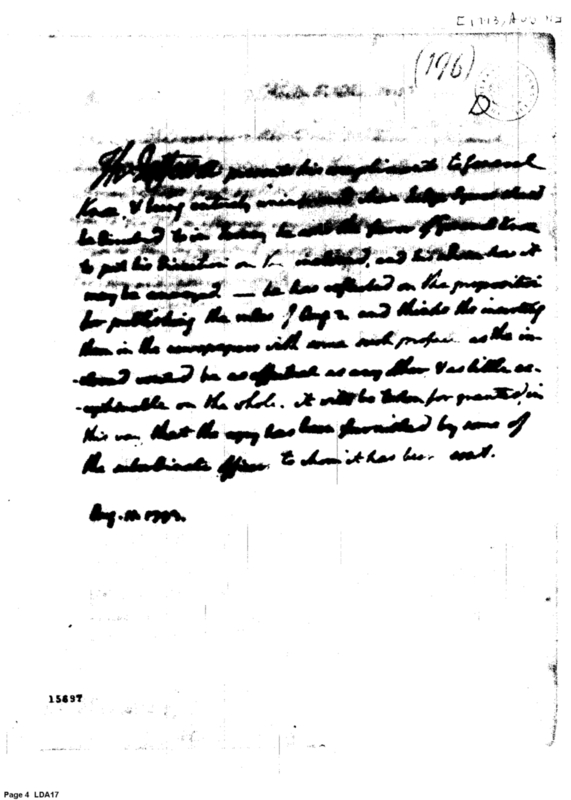 (196)
D
Th. Jefferson presents his compliments to General
Knox & being entirely uninformed where
be directed to in he asks the favor of General Knox
to put his direction on the inclosed, and to it
may be conveyed — he has reflected on the proposition
for publishing the rules of Aug. 3. and thinks the inserting
them in the newspapers with some such preface as the in-
-closed would be as effectual as any other & as little ex-
-ceptionable on the whole. it will be taken for granted, in
this way, that the copy has been furnished by some of
the subordinate officers to whom it has been sent.
Aug. 1793.
15697
Page 4 LDA17